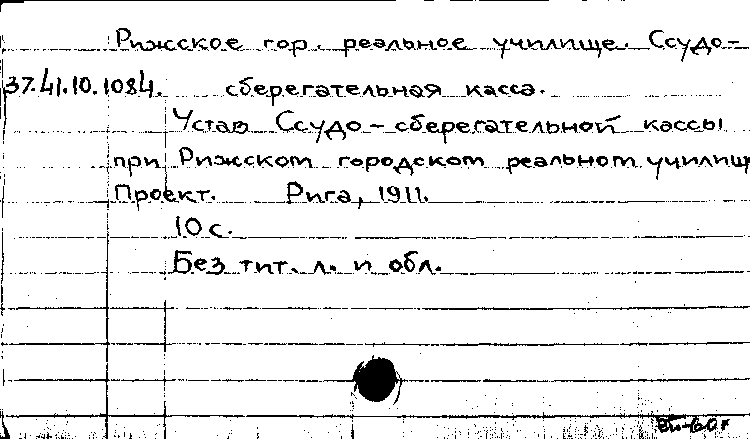 Рижское гор. реальное училище. Ссудо-
37.41.10.1084. сберегательная касса.
Устав Ссудо-сберегательной кассы
при Рижском городском реальном училищ
Проект. Рига, 1911.
10 с.
Без тит. л. и обл.